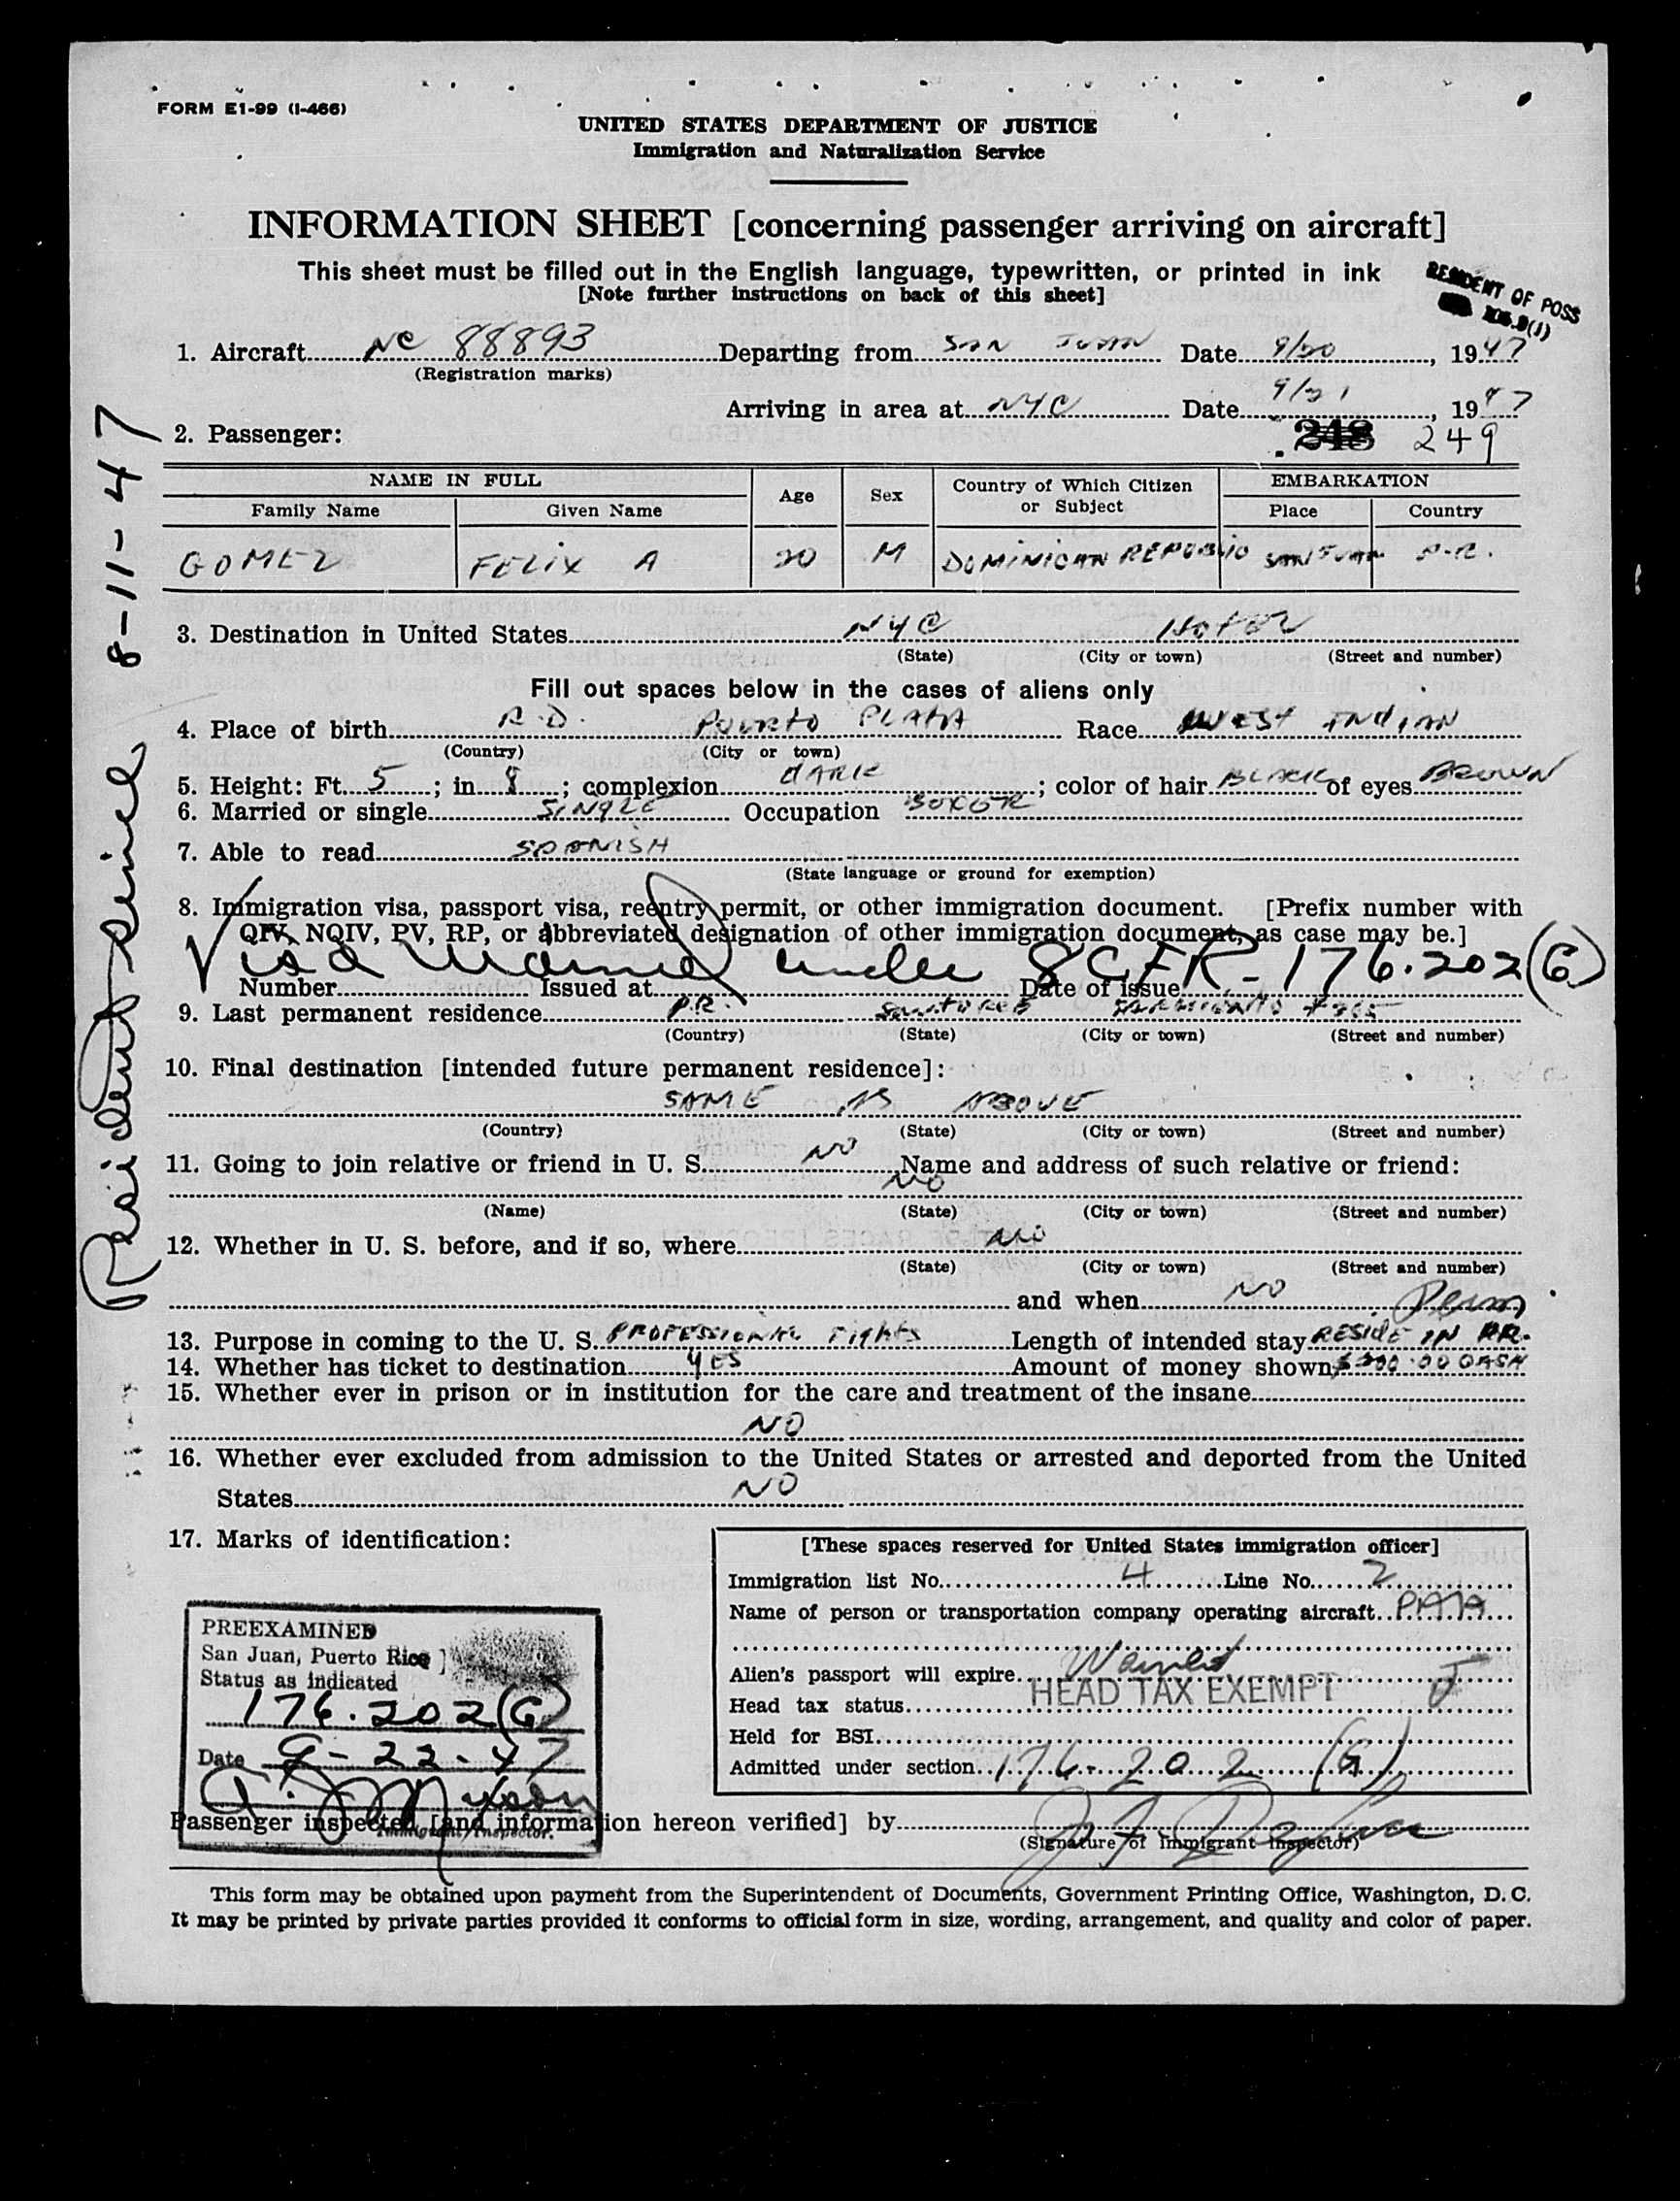 FORM E1-99 (I-466)
UNITED STATES DEPARTMENT OF JUSTICE
Immigration and Naturalization Service
INFORMATION SHEET [concerning passenger arriving on aircraft]
This sheet must be filled out in the English language, typewritten, or printed in ink
[Note further instructions on back of this sheet]
RESIDENT OF POSS
1. Aircraft NC 88893 Departing from SAN JUAN Date 9/20, 1947
(Registration marks)
Arriving in area at NYC Date 9/21, 1947
2. Passenger: 248 249
NAME IN FULL Age Sex Country of Which Citizen or Subject EMBARKATION
Family Name Given Name Place Country
GOMEZ FELIX A 20 M DOMINICAN REPUBLIC SAN JUAN P.R.
3. Destination in United States NYC HOTEL
(State) (City or town) (Street and number)
Fill out spaces below in the cases of aliens only
4. Place of birth R.D. PUERTO PLATA Race WEST INDIAN
(Country) (City or town)
5. Height: Ft. 5; in. 8; complexion DARK; color of hair BLACK of eyes BROWN
6. Married or single SINGLE Occupation BOXER
7. Able to read SPANISH
(State language or ground for exemption)
8. Immigration visa, passport visa, reentry permit, or other immigration document. [Prefix number with
QIV, NQIV, PV, RP, or abbreviated designation of other immigration document, as case may be.]
Visa Waived under 8 CFR-176.202(G)
Number Issued at Date of issue
9. Last permanent residence P.R. SANTURCE
(Country) (State) (City or town) (Street and number)
10. Final destination [intended future permanent residence]:
SAME AS ABOVE
(Country) (State) (City or town) (Street and number)
11. Going to join relative or friend in U. S. NO Name and address of such relative or friend:
NO
(Name) (State) (City or town) (Street and number)
12. Whether in U. S. before, and if so, where NO
(State) (City or town) (Street and number)
and when NO Perm
13. Purpose in coming to the U. S. PROFESSIONAL FIGHTS Length of intended stay RESIDE IN P.R.
14. Whether has ticket to destination YES Amount of money shown $200.00 CASH
15. Whether ever in prison or in institution for the care and treatment of the insane
NO
16. Whether ever excluded from admission to the United States or arrested and deported from the United
States NO
17. Marks of identification:
[These spaces reserved for United States immigration officer]
Immigration list No. 4 Line No. 2
Name of person or transportation company operating aircraft PAA
Alien's passport will expire Waived
Head tax status HEAD TAX EXEMPT
Held for BSI
Admitted under section 176.202 (G)
PREEXAMINED
San Juan, Puerto Rico
Status as indicated
176.202(G)
Date 9-22-47
Immigrant Inspector.
Passenger inspected [and information hereon verified] by
(Signature of Immigrant Inspector)
This form may be obtained upon payment from the Superintendent of Documents, Government Printing Office, Washington, D. C.
It may be printed by private parties provided it conforms to official form in size, wording, arrangement, and quality and color of paper.
Resident since 8-11-47